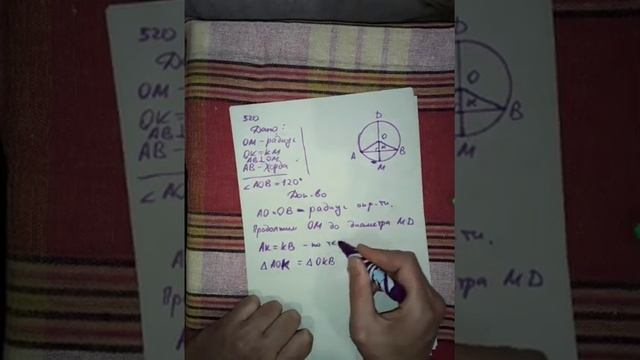 520
Дано:
OM - радиус
OK = KM
AB ⊥ OM
AB - хорда
∠AOB = 120°
Док-во
AO = OB - радиус окр-ти.
Продолжим OM до диаметра MD
AK = KB - по те
△ AOK = △ OKB
D
O
K
A
B
M
520
Дано
OM -
OK =
AB ⊥
AB -
∠ AO
O
K
B
M
тра MD